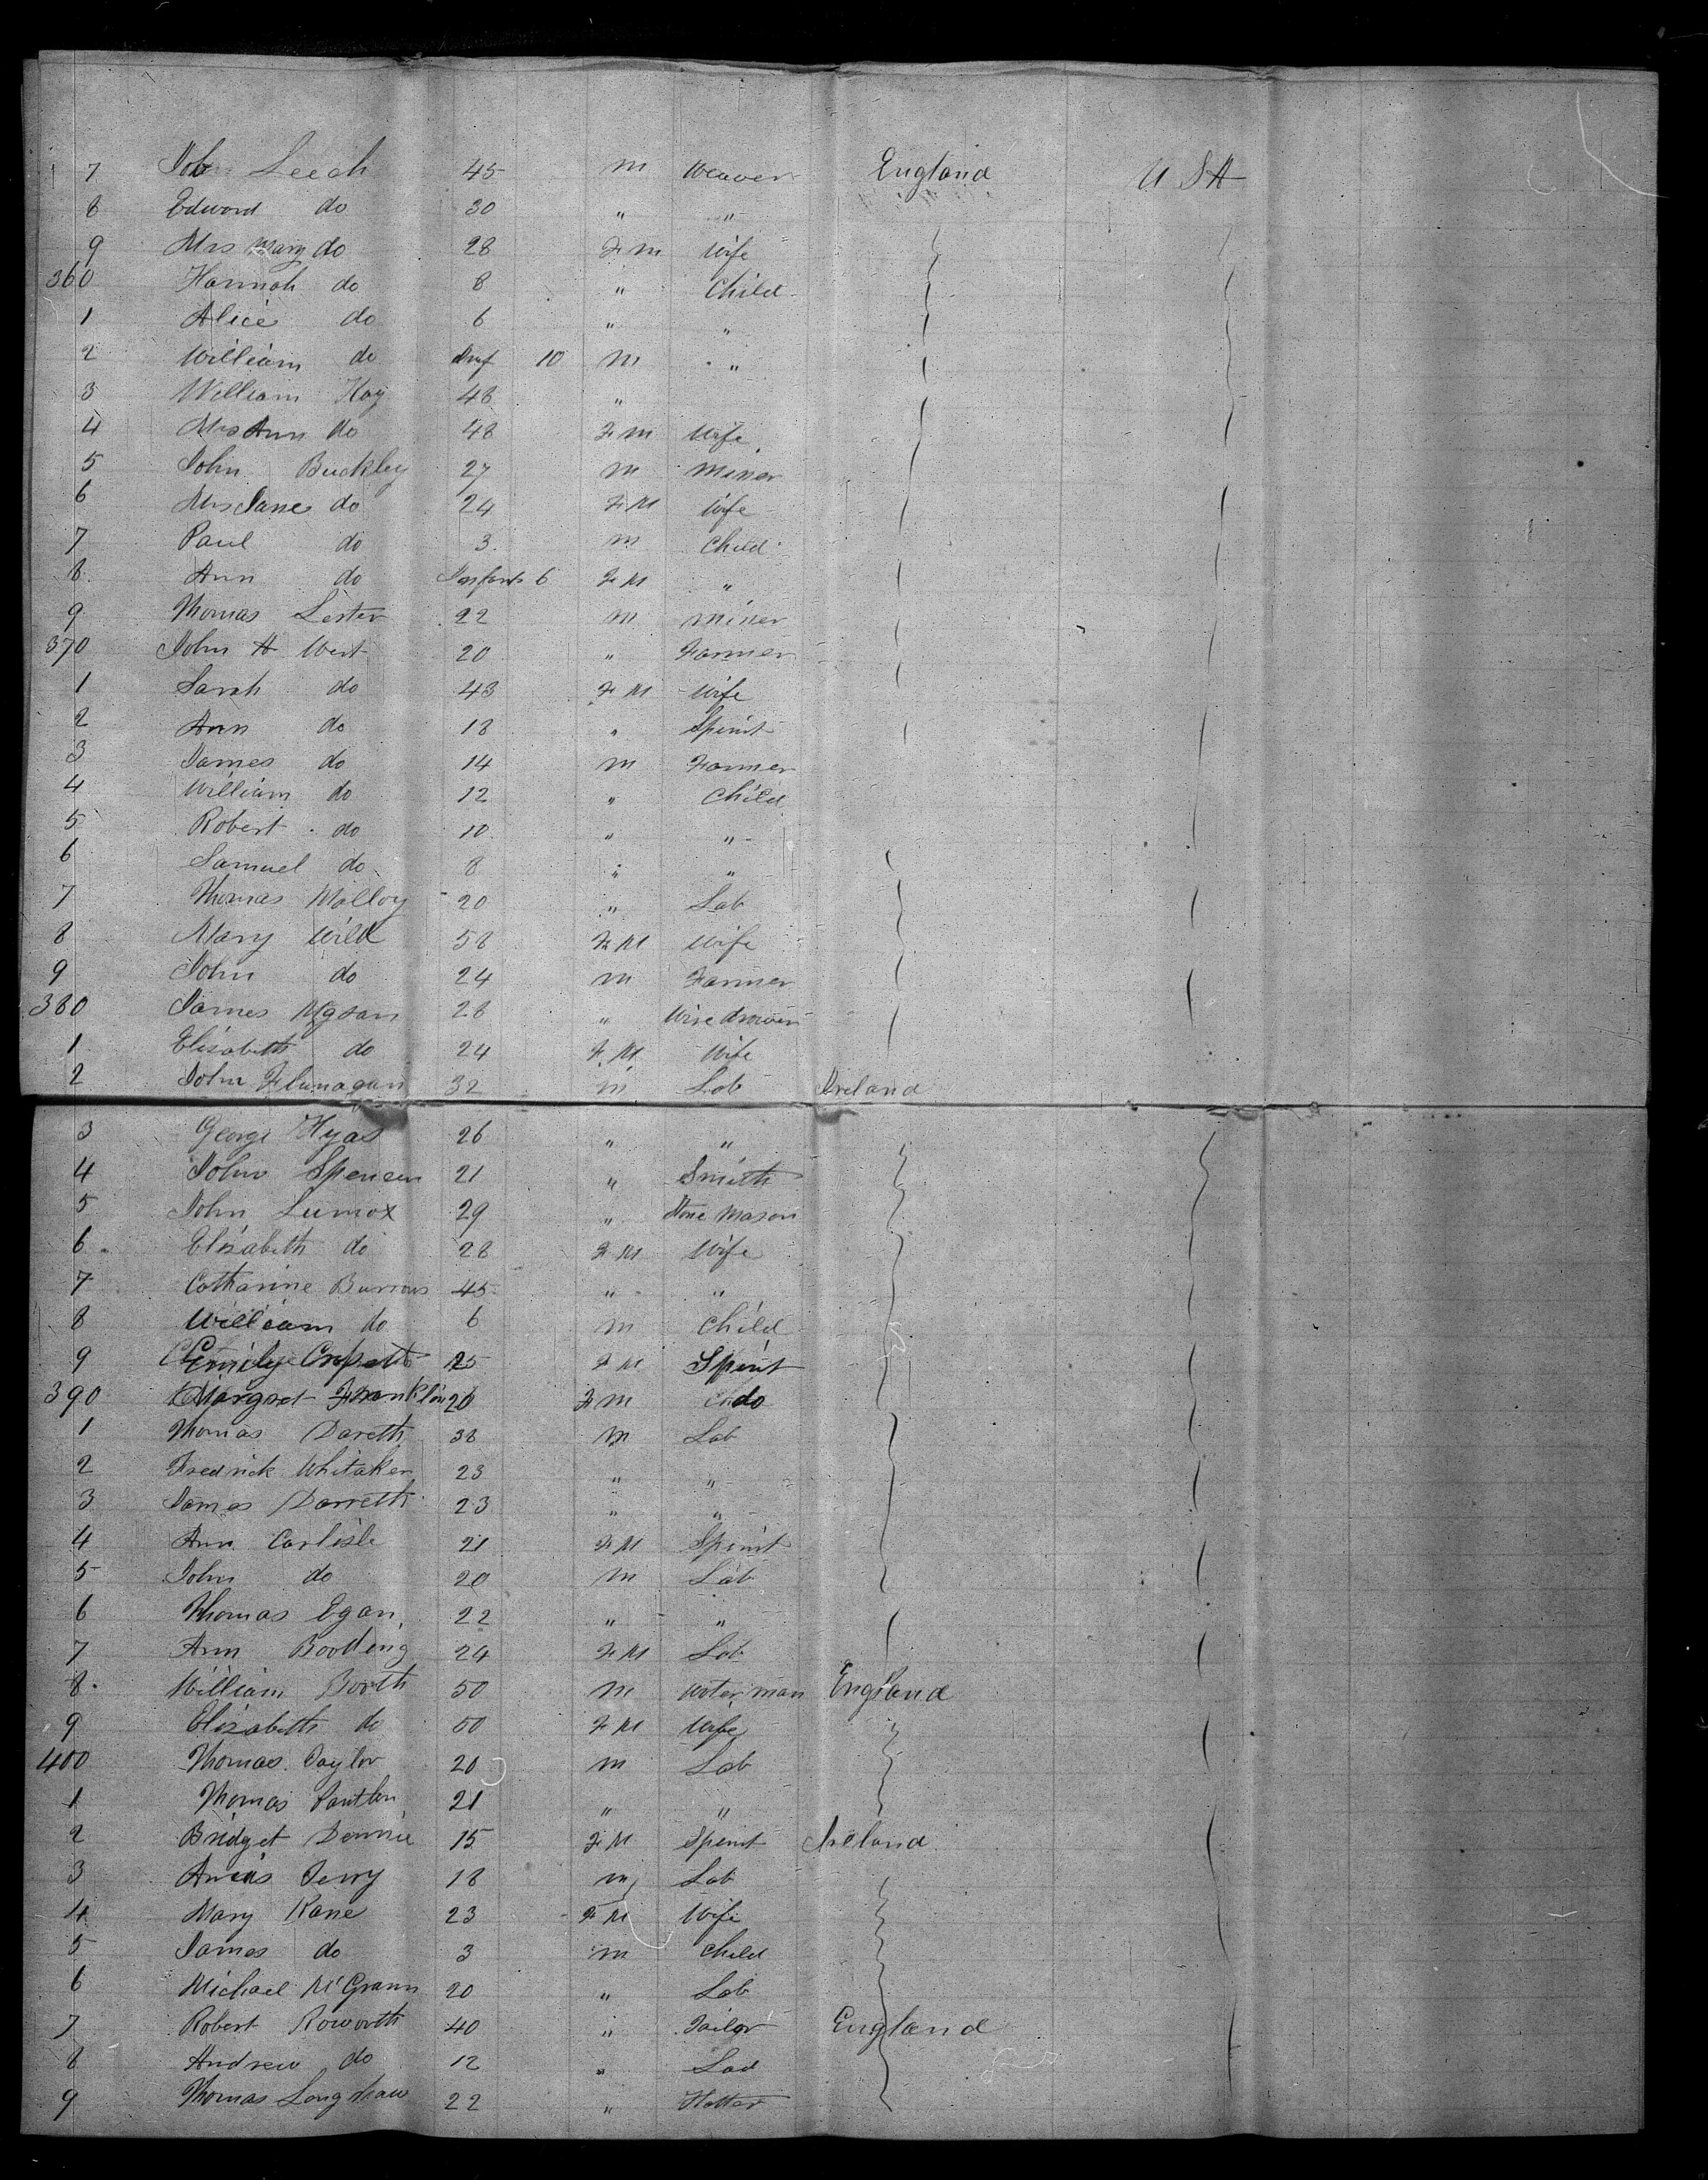 7 Job Leech 45 m Weaver England U S A
8 Edward do 30 " "
9 Mrs Mary do 28 Fm Wife
360 Hannah do 8 " Child
1 Alice do 6 " "
2 William do Inf 10 m "
3 William Hay 48 "
4 Mrs Ann do 48 Fm Wife
5 John Buckley 27 m Miner
6 Mrs Jane do 24 FM Wife
7 Paul do 3 m Child
8 Ann do Infant 6 FM "
9 Thomas Lester 22 m Miner
370 John H West 20 " Farmer
1 Sarah do 43 FM Wife
2 Ann do 18 " Spinst
3 James do 14 m Farmer
4 William do 12 " Child
5 Robert do 10 " "
6 Samuel do 8 " "
7 Thomas Molloy 20 " Lab
8 Mary Wild 58 FM Wife
9 John do 24 m Farmer
380 James 28 " Wire drawer
1 Elizabeth do 24 FM Wife
2 John Flanagan 32 m Lab Ireland
3 George 26 " "
4 John Spencer 21 " Smith
5 John Lumox 29 " Stone Mason
6 Elizabeth do 28 FM Wife
7 Catharine Burrows 45 " "
8 William do 6 m Child
9 Emily 25 FM Spinst
390 Margret Franklin 26 Fm do
1 Thomas Dareth 38 m Lab
2 Fredrick Whitaker 23 " "
3 James Darreth 23 " "
4 Ann Carlisle 21 FM Spinst
5 John do 20 m Lab
6 Thomas Egan 22 " "
7 Ann 24 FM Lab
8 William Booth 50 m Waterman England
9 Elizabeth do 50 FM Wife
400 Thomas Taylor 20 m Lab
1 Thomas 21 " "
2 Bridget Dennie 15 FM Spinst Ireland
3 Perry 18 m Lab
4 Mary Kane 23 FM Wife
5 James do 3 m Child
6 Michael McGrann 20 " Lab
7 Robert Roworth 40 " Tailor England
8 Andrew do 12 " Lad
9 Thomas Longshaw 22 " Hatter